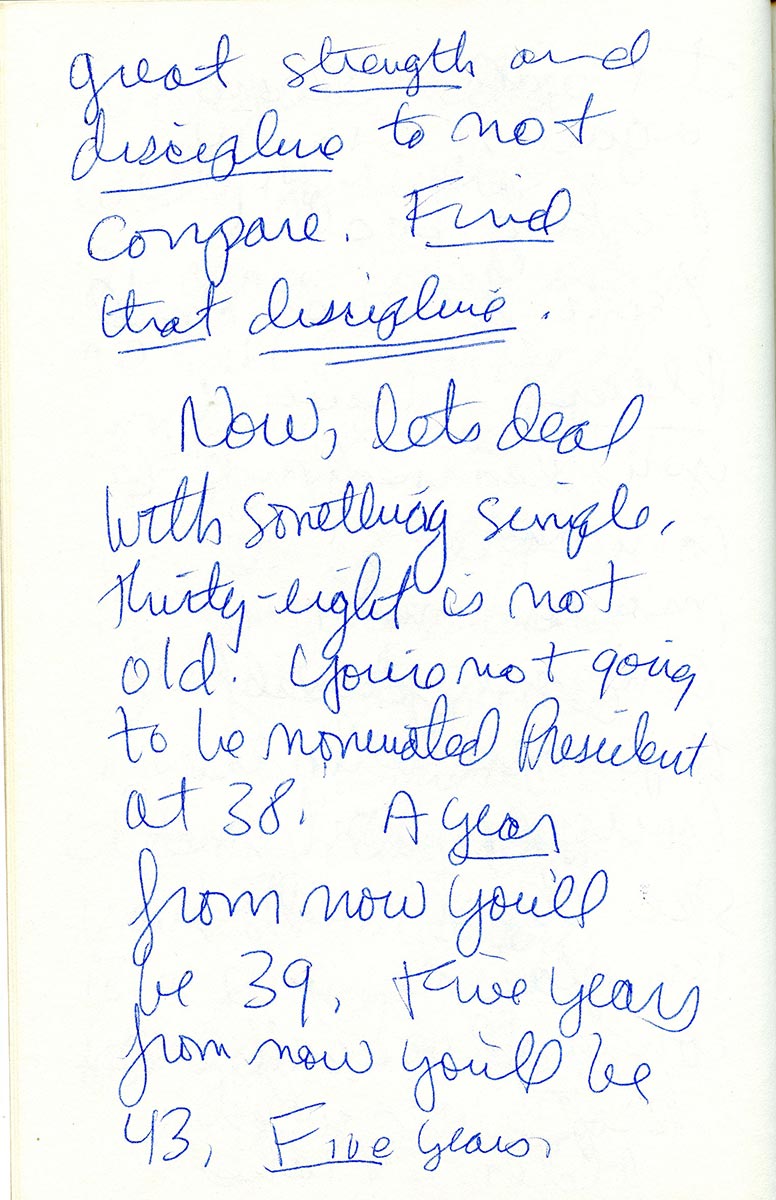 great strength and
discipline to not
compare. Find
that discipline.
Now, lets deal
with something simple.
thirty-eight is not
old. You're not going
to be nominated President
at 38. A year
from now you'll
be 39. Five years
from now you'll be
43. Five years.